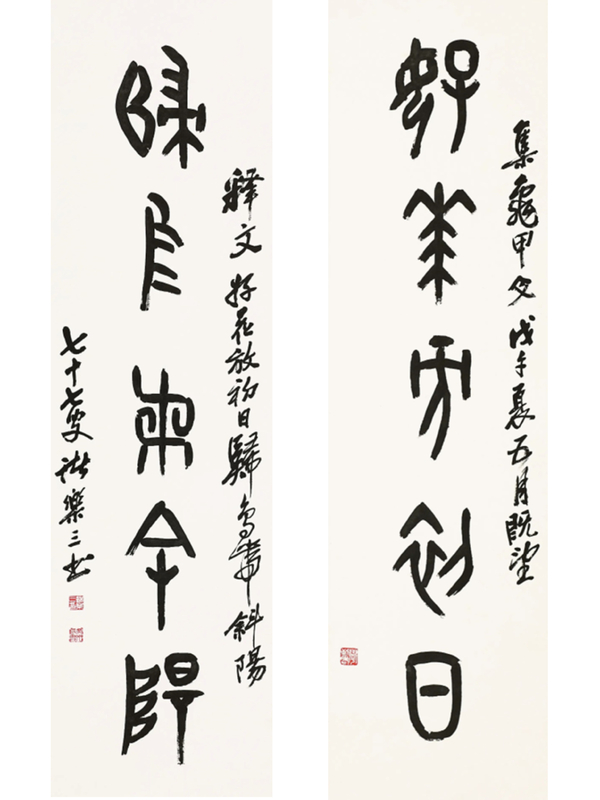 集龜甲文戊午夏五月既望
好花放初日
釋文好花放初日歸鳥帶斜陽
歸鳥帶斜陽
七十七叟諸樂三書